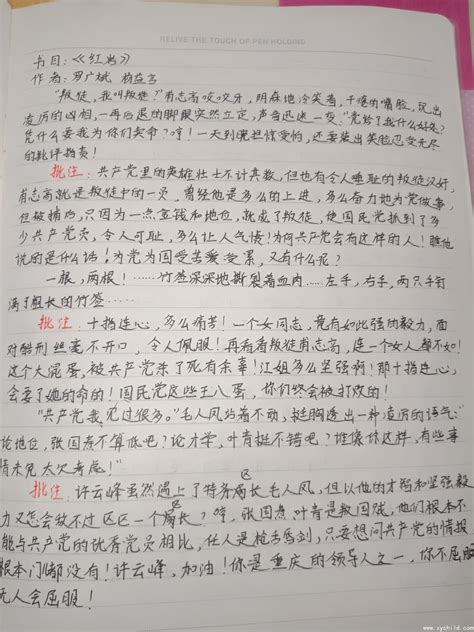 RELIVE THE TOUCH OF PEN HOLDING
书目:《红岩》
作者:罗广斌 杨益言
"叛徒,我叫叛徒?"甫志高咬咬牙,阴森地冷笑着,干瘪的嘴脸,现出
凌厉的凶相,一再后退的脚跟突然立定,声音迅速一变。"党给了我什么好处?
凭什么要我为你们卖命?哼!一天到晚担惊受怕,还要装出笑脸忍受无尽
的批评指责!
批注:共产党里的英雄壮士不计其数,但也有令人唾耻的叛徒汉奸,
甫志高就是叛徒中的一员,曾经他是多么的上进,多么奋力地为党做事,
但被捕后,只因为一点金钱和地位,就成了叛徒,使国民党抓到了多
少共产党员,令人可耻,多么让人气愤!为何共产党会有这样的人!瞧他
说的是什么话!为党为国受苦受累,又有什么呢?
一根,两根!……竹签深深地撕裂着血肉……左手,右手,两只手钉
满了粗长的竹签……
批注:十指连心,多么痛苦!一个女同志,竟有如此强的毅力,面
对酷刑丝毫不开口,令人佩服!再看看叛徒甫志高,连一个女人都不如!
这个大混蛋,被共产党杀了死有余辜!江姐多么坚强啊!那十指连心,
会要了她的命的!国民党这些王八蛋,你们终会被打败的!
"共产党我见过很多。"毛人凤站着不动,挺胸透出一种凌厉的语气:"
论地位,张国焘不算低吧?论才学,叶青挺不错吧?谁像你这样,有些事
情未免太欠考虑!"
批注:许云峰虽然遇上了特务局长毛人凤,但以他的才智和坚强毅
力又怎会敌不过区区一个局长?哼,张国焘叶青是败国贼,他们根本不
能与共产党的优秀党员相比,任人是枪击虐剑,只要想问共产党的情报
根本门都没有!许云峰,加油!你是重庆的领导人之一,你不屈服
无人会屈服!
www.xyshild.com